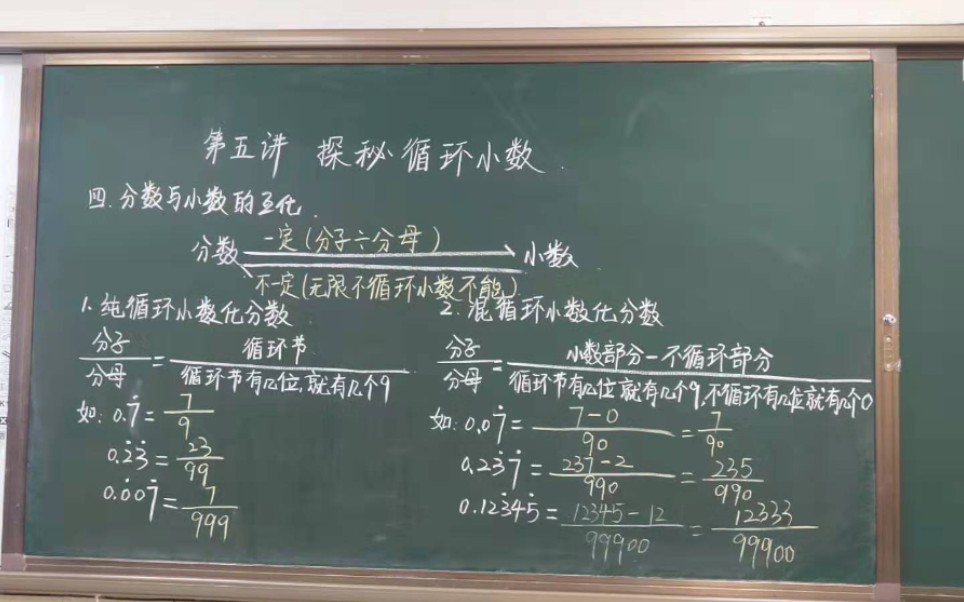 第五讲 探秘循环小数.
四.分数与小数的互化.
分数 一定(分子÷分母) 小数
不一定(无限不循环小数不能)
1.纯循环小数化分数
分子/分母=循环节/循环节有几位,就有几个9
如:0.7̇=7/9
0.2̇3̇=23/99
0.0̇07̇=7/999
2.混循环小数化分数
分子/分母=小数部分-不循环部分/循环节有几位就有几个9,不循环有几位就有几个0
如:0.07̇=7-0/90=7/90
0.23̇7̇=237-2/990=235/990
0.123̇45̇=12345-12/99900=12333/99900